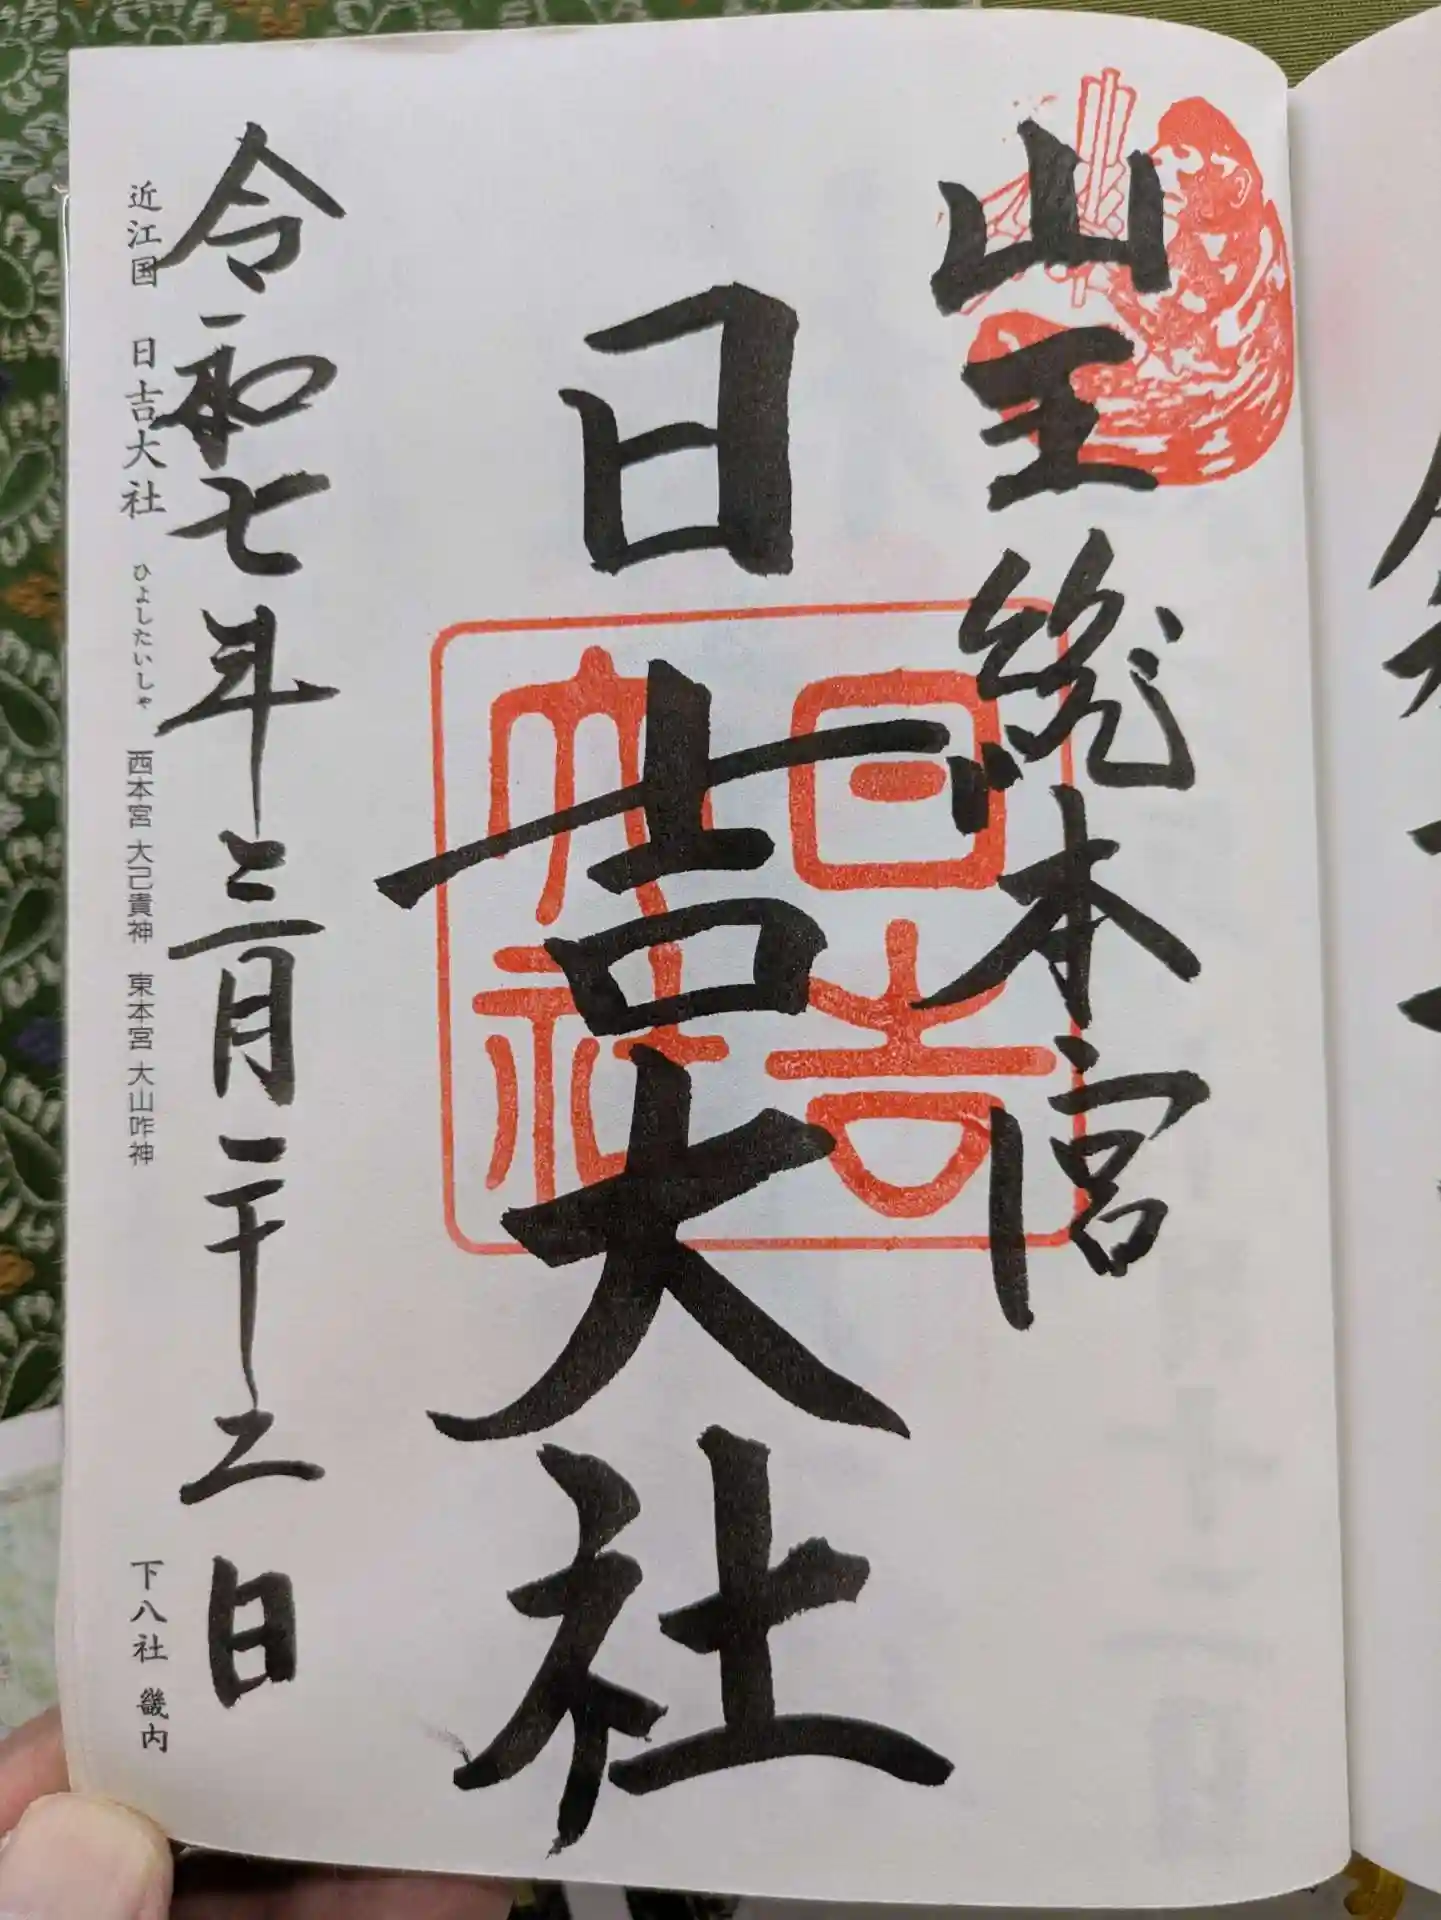 山王総本宮
日吉大社
日吉大社
令和七年三月二十二日
近江国 日吉大社 ひよしたいしゃ 西本宮 大己貴神 東本宮 大山咋神 下八社 畿内